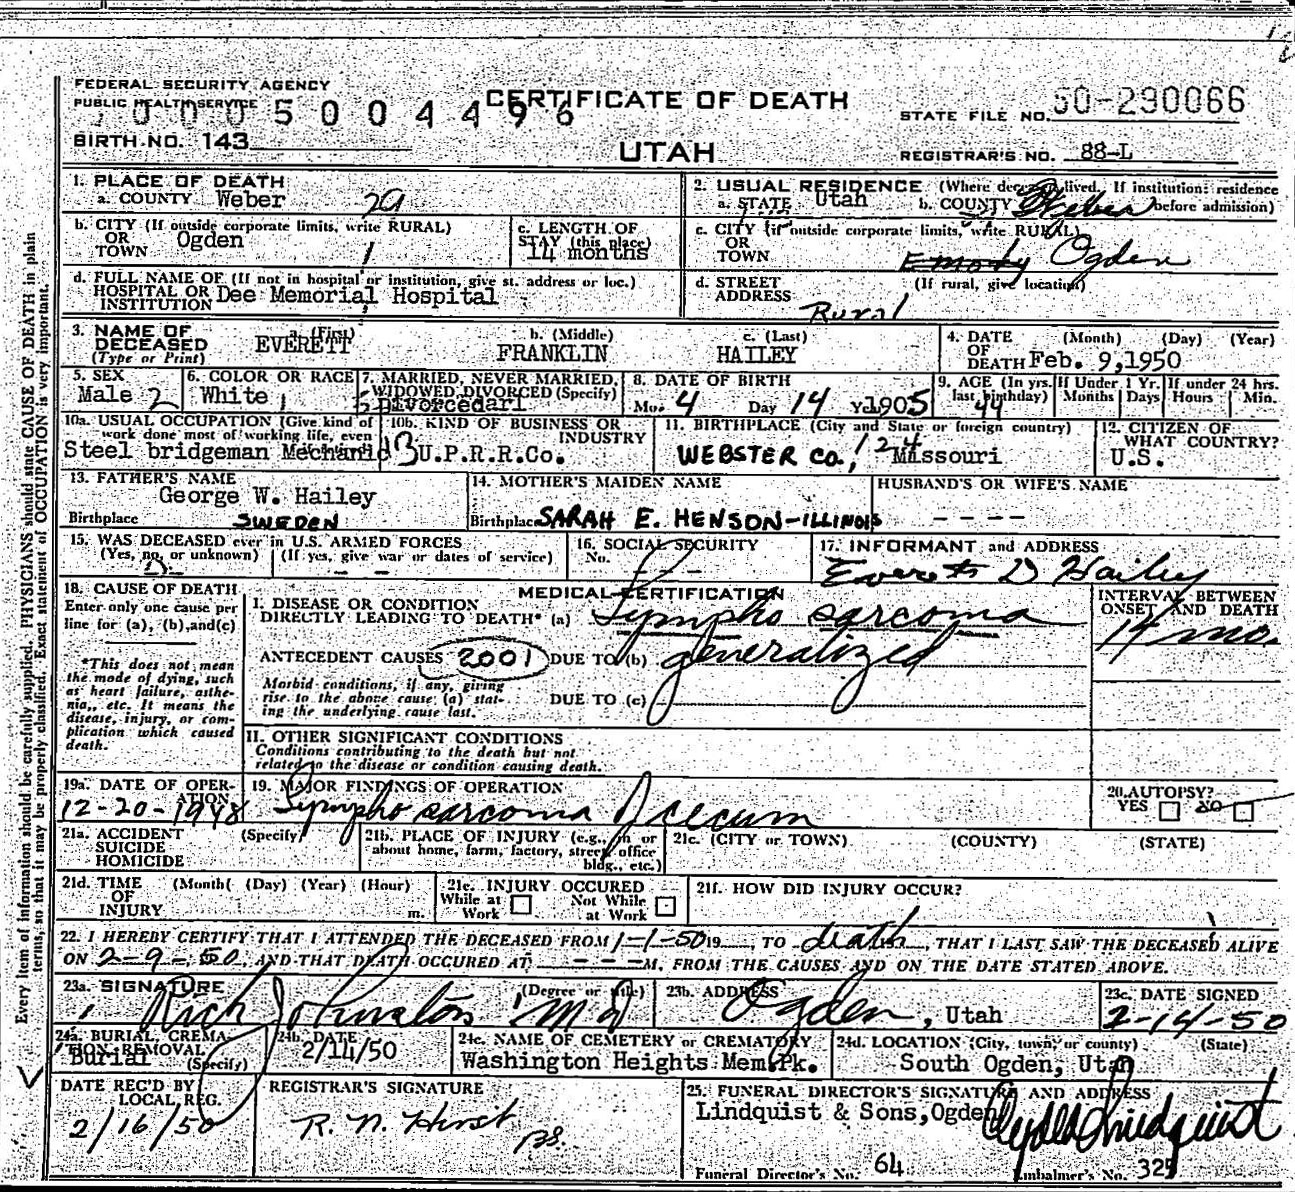 FEDERAL SECURITY AGENCY
PUBLIC HEALTH SERVICE
0005004496
CERTIFICATE OF DEATH
UTAH
STATE FILE NO. 50-290066
BIRTH NO. 143
REGISTRAR'S NO. 88-L
Every item of information should be carefully supplied. PHYSICIANS should state CAUSE OF DEATH in plain
terms, so that it may be properly classified. Exact statement of OCCUPATION is very important.
1. PLACE OF DEATH
a. COUNTY Weber 29
2. USUAL RESIDENCE (Where deceased lived. If institution: residence
a. STATE Utah b. COUNTY Weber before admission)
b. CITY (If outside corporate limits, write RURAL)
OR Ogden
TOWN 1
c. LENGTH OF
STAY (this place)
14 months
c. CITY (if outside corporate limits, write RURAL)
OR
TOWN Emory Ogden
d. FULL NAME OF (If not in hospital or institution, give st. address or loc.)
HOSPITAL OR Dee Memorial Hospital
INSTITUTION
d. STREET (If rural, give location)
ADDRESS Rural
3. NAME OF DECEASED
(Type or Print)
a. (First) EVERETT
b. (Middle) FRANKLIN
c. (Last) HAILEY
4. DATE OF DEATH (Month) (Day) (Year)
Feb. 9,1950
5. SEX
Male 2
6. COLOR OR RACE
White 1
7. MARRIED, NEVER MARRIED,
WIDOWED, DIVORCED (Specify)
8. DATE OF BIRTH
Mo. 4 Day 14 Yr. 1905
9. AGE (In yrs. last birthday) 44
If Under 1 Yr. Months Days
If under 24 hrs. Hours Min.
10a. USUAL OCCUPATION (Give kind of
work done most of working life, even
Steel bridgeman Mechanic
10b. KIND OF BUSINESS OR
INDUSTRY
U.P.R.R.Co.
11. BIRTHPLACE (City and State or foreign country)
WEBSTER CO., 124 Missouri
12. CITIZEN OF
WHAT COUNTRY?
U.S.
13. FATHER'S NAME
George W. Hailey
Birthplace SWEDEN
14. MOTHER'S MAIDEN NAME
Birthplace SARAH E. HENSON-ILLINOIS
HUSBAND'S OR WIFE'S NAME
- - - -
15. WAS DECEASED ever in U.S. ARMED FORCES
(Yes, no, or unknown) (If yes, give war or dates of service)
- -
16. SOCIAL SECURITY
No. - -
17. INFORMANT and ADDRESS
Everett D Hailey
18. CAUSE OF DEATH
Enter only one cause per
line for (a), (b), and(c)
*This does not mean
the mode of dying, such
as heart failure, asthe-
nia,, etc. It means the
disease, injury, or com-
plication which caused
death.
MEDICAL CERTIFICATION
I. DISEASE OR CONDITION
DIRECTLY LEADING TO DEATH* (a) Lympho sarcoma
ANTECEDENT CAUSES 2001 DUE TO (b) generalized
Morbid conditions, if any, giving
rise to the above cause (a) stat-
ing the underlying cause last.
DUE TO (c)
INTERVAL BETWEEN
ONSET AND DEATH
14 mo.
II. OTHER SIGNIFICANT CONDITIONS
Conditions contributing to the death but not
related to the disease or condition causing death.
19a. DATE OF OPER-
ATION
12-20-1948
19. MAJOR FINDINGS OF OPERATION
Lympho sarcoma of cecum
20. AUTOPSY?
YES NO
21a. ACCIDENT (Specify)
SUICIDE
HOMICIDE
21b. PLACE OF INJURY (e.g., in or
about home, farm, factory, street, office
bldg., etc.)
21c. (CITY or TOWN) (COUNTY) (STATE)
21d. TIME (Month( (Day) (Year) (Hour)
OF
INJURY m.
21e. INJURY OCCURED
While at Work
Not While at Work
21f. HOW DID INJURY OCCUR?
22. I HEREBY CERTIFY THAT I ATTENDED THE DECEASED FROM 1-1-50 19__, TO death, THAT I LAST SAW THE DECEASED ALIVE
ON 2-9-50, AND THAT DEATH OCCURED AT - - - M, FROM THE CAUSES AND ON THE DATE STATED ABOVE.
23a. SIGNATURE (Degree or title)
Rich Johnston MD
23b. ADDRESS
Ogden, Utah
23c. DATE SIGNED
2-14-50
24a. BURIAL, CREMA-
TION REMOVAL
Burial (Specify)
24b. DATE
2/14/50
24c. NAME OF CEMETERY or CREMATORY
Washington Heights Mem.Pk.
24d. LOCATION (City, town, or county) (State)
South Ogden, Utah
DATE REC'D BY
LOCAL REG.
2/16/50
REGISTRAR'S SIGNATURE
R. N. Hirst
25. FUNERAL DIRECTOR'S SIGNATURE AND ADDRESS
Lindquist & Sons,Ogden Clyde Lindquist
Funeral Director's No. 64 Embalmer's No. 325